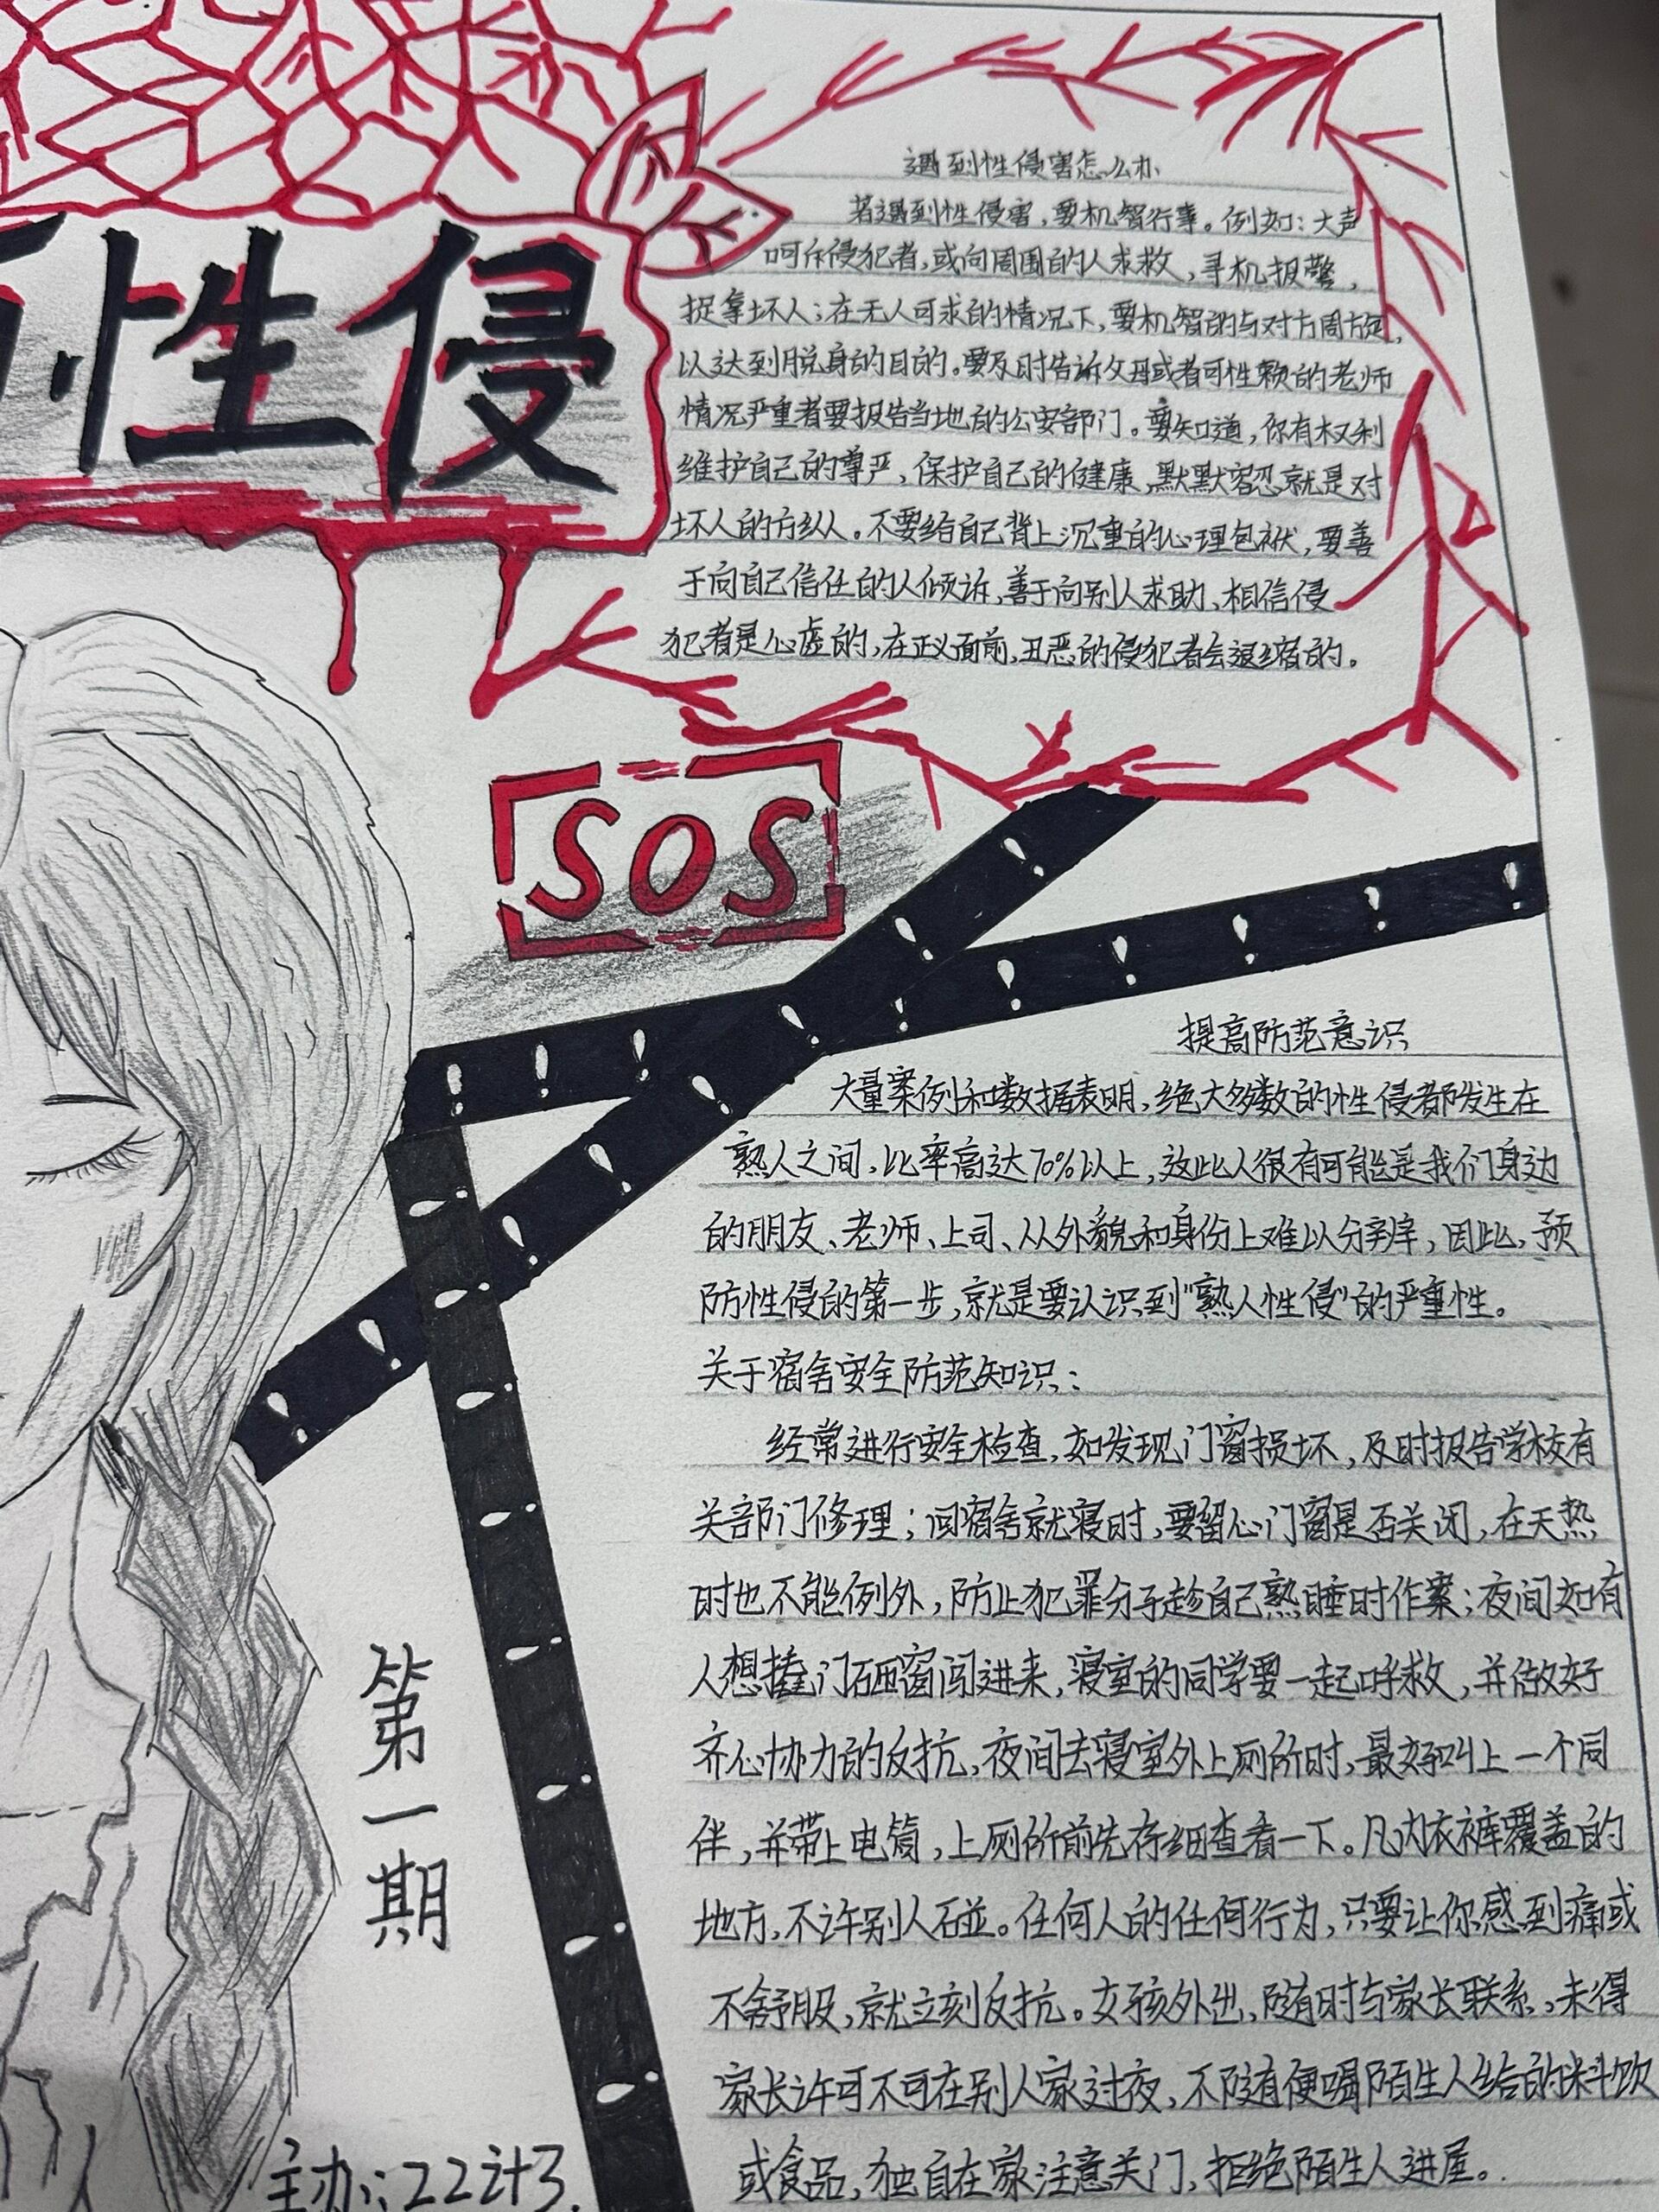 性侵
遇到性侵害怎么办
若遇到性侵害,要机智行事。例如:大声
呵斥侵犯者,或向周围的人求救,寻机报警,
捉拿坏人;在无人可求的情况下,要机智的与对方周旋,
以达到脱身的目的。要及时告诉父母或者可性赖的老师
情况严重者要报告当地的公安部门。要知道,你有权利
维护自己的尊严,保护自己的健康,默默容忍就是对
坏人的方纵人。不要给自己背上沉重的心理包袱,要善
于向自己信任的人倾诉,善于向别人求助、相信侵
犯者是心虚的,在正义面前,丑恶的侵犯者会退缩的。
SOS
提高防范意识
大量案例和数据表明,绝大多数的性侵都发生在
熟人之间,比率高达70%以上,这此人很有可能是我们身边
的朋友、老师、上司、从外貌和身份上难以分辨,因此,预
防性侵的第一步,就是要认识到"熟人性侵"的严重性。
关于宿舍安全防范知识:
经常进行安全检查,如发现门窗损坏,及时报告学校有
关部门修理;回宿舍就寝时,要留心门窗是否关闭,在天热
时也不能例外,防止犯罪分子趁自己熟睡时作案;夜间如有
人想撞门砸窗闯进来,寝室的同学要一起呼救,并做好
齐心协力的反抗,夜间去寝室外上厕所时,最好叫上一个同
伴,并带上电筒,上厕所前先仔细查看一下。凡内衣裤覆盖的
地方,不许别人碰。任何人的任何行为,只要让你感到痛或
不舒服,就立刻反抗。女孩外出,随时与家长联系,未得
家长许可不可在别人家过夜,不随便喝陌生人给的料饮
或食品,独自在家注意关门,拒绝陌生人进屋。
第一期
主办:22计3.